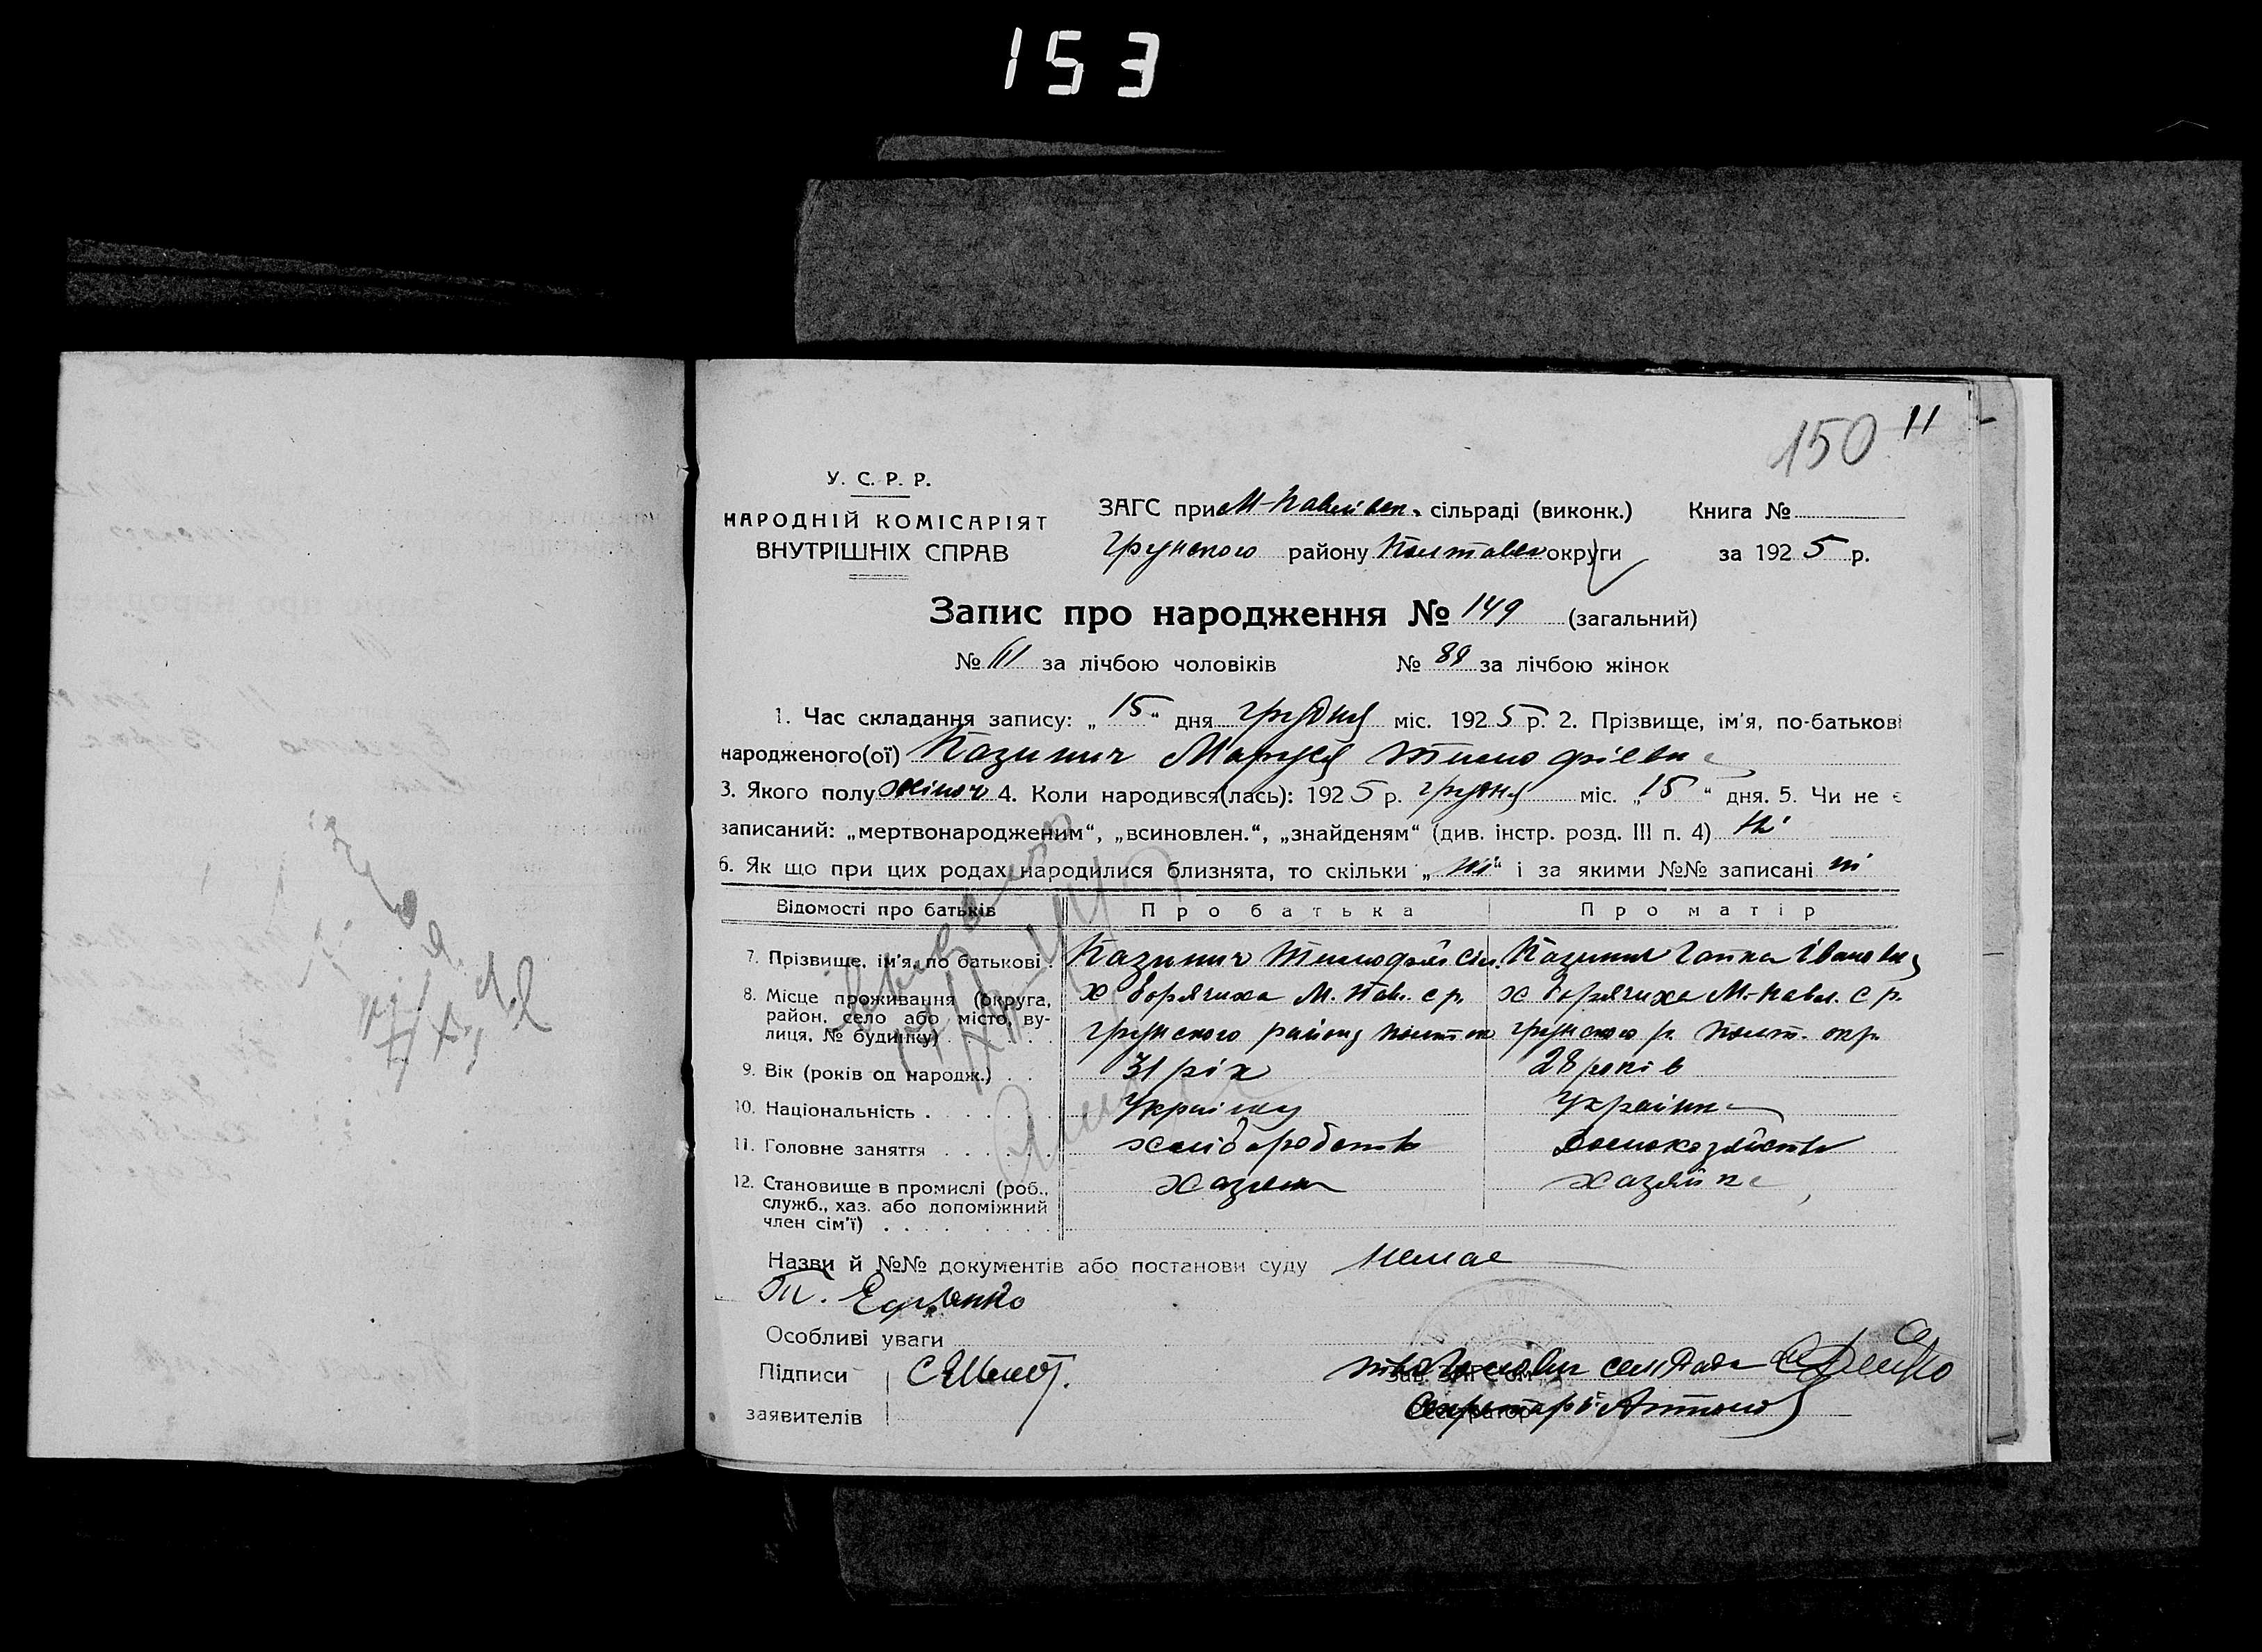 153
150 11
У. С. Р. Р.
НАРОДНІЙ КОМІСАРІЯТ
ВНУТРІШНІХ СПРАВ
ЗАГС при М-Павлівск. сільраді (виконк.)
Грунського району Полтавск округи
Книга №
за 1925 р.
Запис про народження № 149 (загальний)
№ 61 за лічбою чоловіків № 88 за лічбою жінок
1. Час складання запису: „15“ дня грудня міс. 1925 р. 2. Прізвище, ім'я, по-батькові
народженого(ої) Казимир Маруся Тимофіевна
3. Якого полу жіноч 4. Коли народився(лась): 1925 р. грудня міс. „15“ дня. 5. Чи не є
записаний: „мертвонародженим“, „всиновлен.“, „знайденям“ (див. інстр. розд. III п. 4) ні
6. Як що при цих родах народилися близнята, то скільки „ні“ і за якими №№ записані ні
Відомості про батьків Про батька Про матір
7. Прізвище, ім'я, по батькові. Казимир Тимофій Казимир Гапка Івановна
8. Місце проживання (округа, х Борячиха М. Пав. с р. х Борячиха М.-Павл. с р.
район, село або місто, ву-
лиця, № будинку) грунского району Полт ок грунского р. Полт. окр.
9. Вік (років од народж.) 31 рік 28 років
10. Національність Українец Українка
11. Головне заняття хліборобств домохозяйство
12. Становище в промислі (роб., хазяин хазяйка
служб., хаз. або допоміжний
член сім'ї)
Назви й №№ документів або постанови суду немае
Особливі уваги
Підписи
заявителів
Зав. ЗАГС'ом
Секретарь